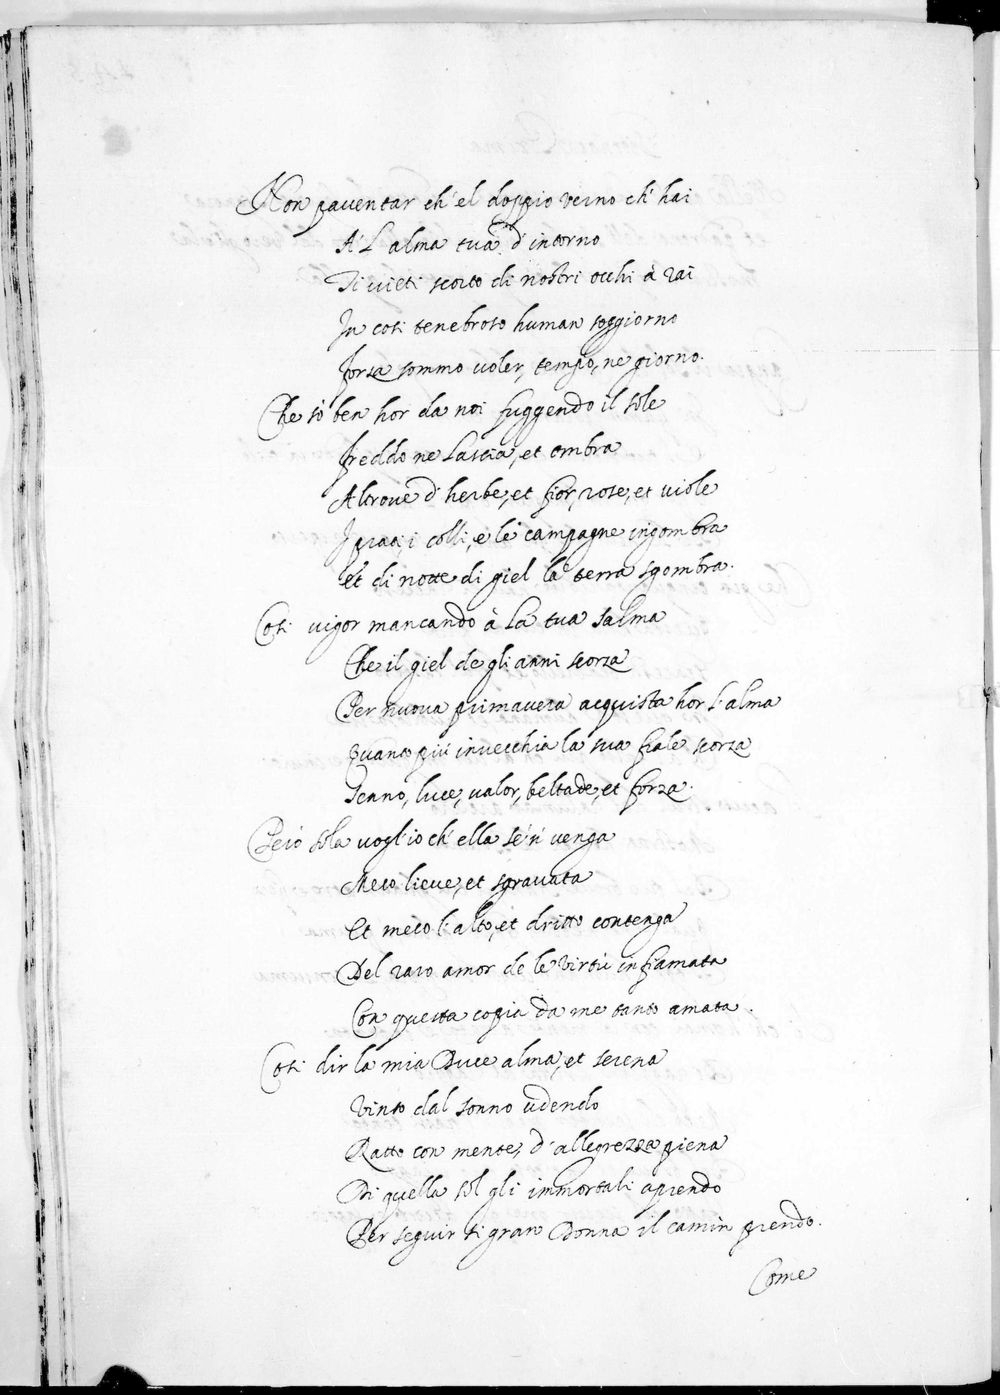 Non paventar ch'el doppio verno ch'hai
A' L'alma tua d'intorno
Ti vieti scorto di nostri occhi à rai
In cosi tenebroso human soggiorno
Forza sommo voler, tempo, ne giorno.
Che so ben hor da noi fuggendo il sole
Freddo ne Lascia, et ombra
Altrove d'herbe, et fior, rose, et viole
I prati, i colli, e le campagne ingombra
Et di notte di giel la terra sgombra.
Cosi vigor mancando à La tua salma
Che il giel de gli anni scorza
Per nuova primavera acquista hor l'alma
Quanto piú invecchia la sua frale scorza
Senno, luce, valor, beltade, et forza.
Però sola vogl'io ch'ella se'n' venga
Meco lieve, et sgravata
Et meco l'alto, et dritto contenga
Del raro amor de le virtù infiamata
Con questa copia da me tanto amata.
Cosi dir la mia Duce alma, et serena
Vinto dal sonno udendo
Ratto con mente, d'allegrezza piena
Di quella sol gli immortali aprendo
Per seguir ti gran Donna il camin prendo.
Come